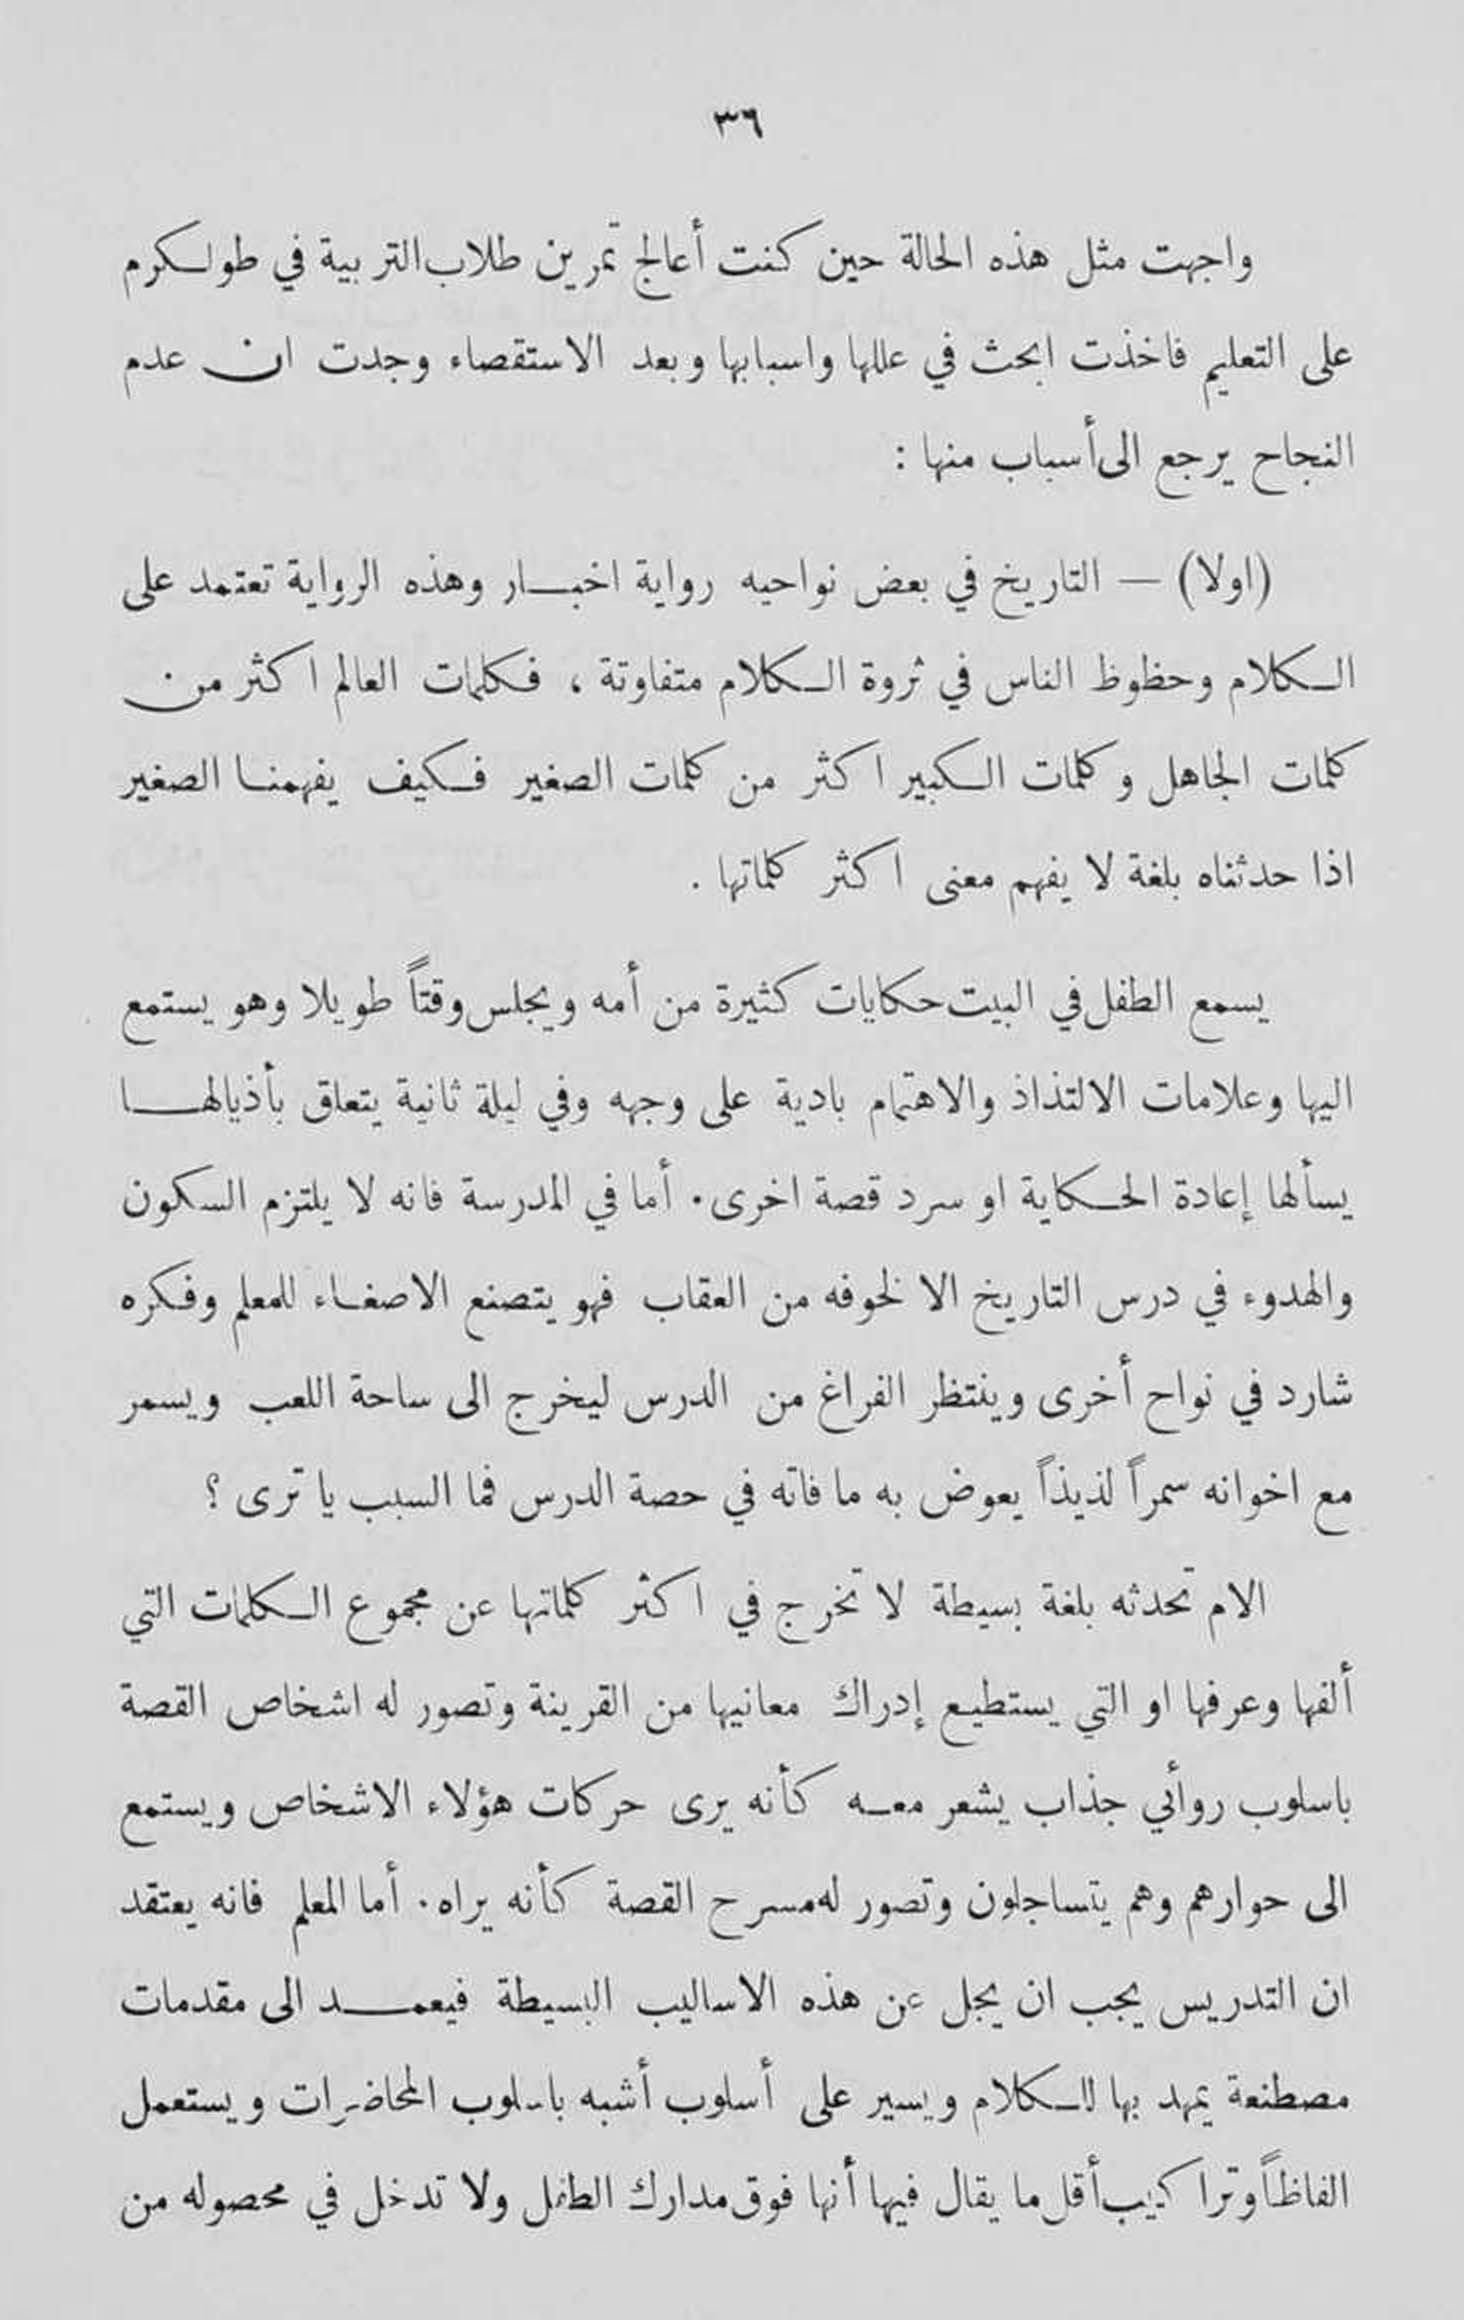 ٣٦
واجهت مثل هذه الحالة حين كنت أعالج تمرين طلاب التربية في طولكرم
على التعليم فاخذت ابحث في عللها واسبابها وبعد الاستقصاء وجدت ان عدم
النجاح يرجع الى أسباب منها :
(اولا) — التاريخ في بعض نواحيه رواية اخبار وهذه الرواية تعتمد على
الكلام وحظوظ الناس في ثروة الكلام متفاوتة ، فكلمات العالم اكثر من
كلمات الجاهل وكلمات الكبير اكثر من كلمات الصغير فكيف يفهمنا الصغير
اذا حدثناه بلغة لا يفهم معنى اكثر كلماتها .
يسمع الطفل في البيت حكايات كثيرة من أمه ويجلس وقتاً طويلا وهو يستمع
اليها وعلامات الالتذاذ والاهتمام بادية على وجهه وفي ليلة ثانية يتعلق بأذيالها
يسألها إعادة الحكاية او سرد قصة اخرى. أما في المدرسة فانه لا يلتزم السكون
والهدوء في درس التاريخ الا لخوفه من العقاب فهو يتصنع الاصغاء للمعلم وفكره
شارد في نواح أخرى وينتظر الفراغ من الدرس ليخرج الى ساحة اللعب ويسمر
مع اخوانه سمراً لذيذاً يعوض به ما فاته في حصة الدرس فما السبب يا ترى ؟
الام تحدثه بلغة بسيطة لا تخرج في اكثر كلماتها عن مجموع الكلمات التي
ألفها وعرفها او التي يستطيع إدراك معانيها من القرينة وتصور له اشخاص القصة
باسلوب روأئي جذاب يشعر معه كأنه يرى حركات هؤلاء الاشخاص ويستمع
الى حوارهم وهم يتساجلون وتصور له مسرح القصة كأنه يراه. أما المعلم فانه يعتقد
ان التدريس يجب ان يجل عن هذه الاساليب البسيطة فيعمد الى مقدمات
مصطنعة يمهد بها للكلام ويسير على أسلوب أشبه باسلوب المحاضرات ويستعمل
الفاظاً وتراكيب أقل ما يقال فيها أنها فوق مدارك الطفل ولا تدخل في محصوله من